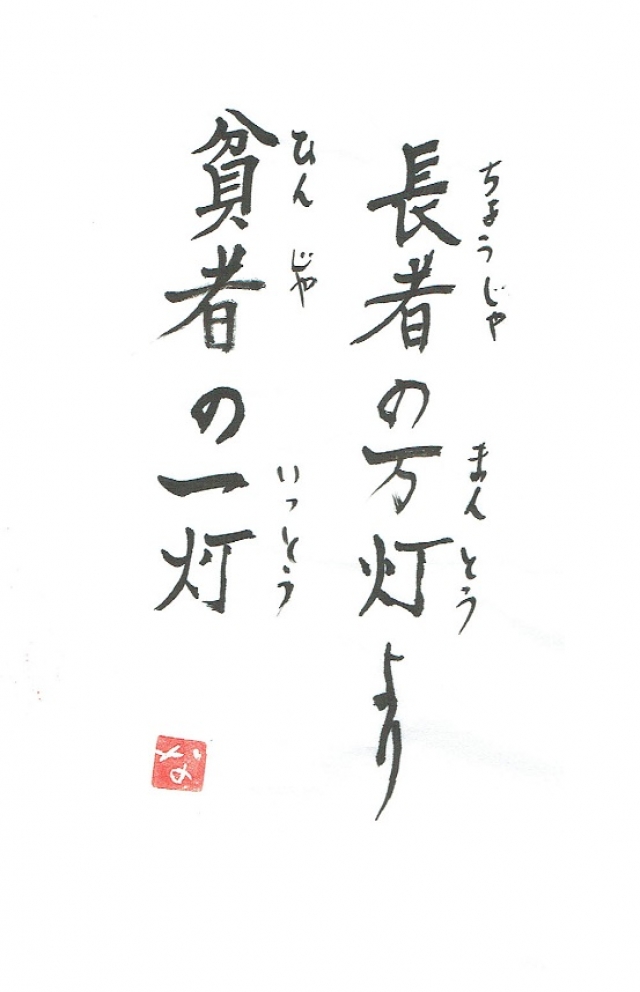 長者の万灯より
ちょうじゃ まんとう
貧者の一灯
ひんじゃ いっとう
な